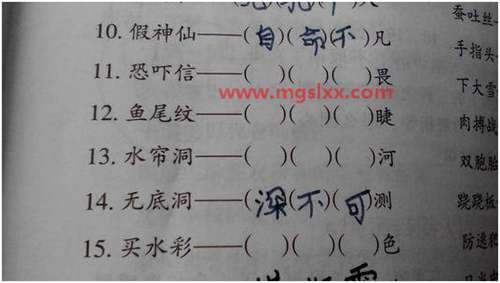 10. 假神仙——(自)(命)(不)凡
蚕吐丝
11. 恐吓信——( )( )( )畏
手指头
www.mgslxx.com
下大雪
12. 鱼尾纹——( )( )( )睫
肉搏战
13. 水帘洞——( )( )( )河
双胞胎
14. 无底洞——(深)(不)(可)测
跷跷板
15. 买水彩——( )( )( )色
防逃犯